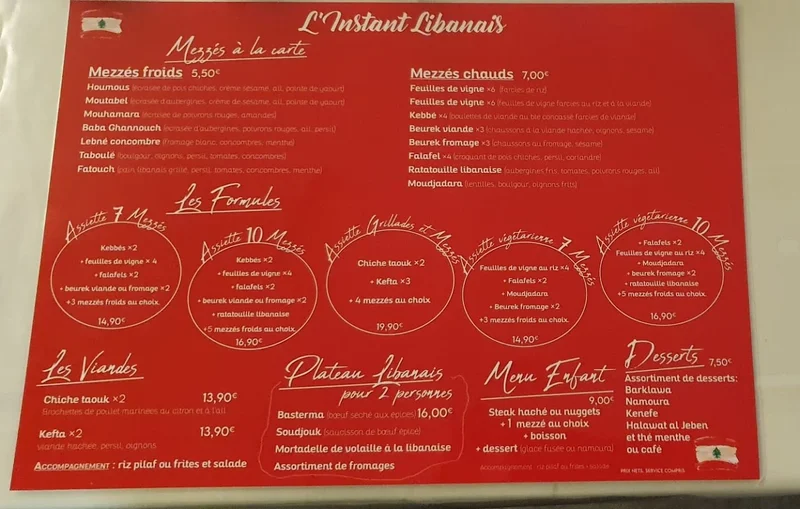 L'Instant Libanais
Mezzés à la carte
Mezzés froids 5,50€
Houmous (écrasée de pois chiches, crème sésame, ail, pointe de yaourt)
Moutabel (écrasée d'aubergines, crème de sésame, ail, pointe de yaourt)
Mouhamara (écrasée de poivrons rouges, amandes)
Baba Ghannouch (écrasée d'aubergines, poivrons rouges, ail, persil)
Lebné concombre (fromage blanc, concombres, menthe)
Taboulé (boulgour, oignons, persil, tomates, concombres)
Fatouch (pain libanais grillé, persil, tomates, concombres, menthe)
Mezzés chauds 7,00€
Feuilles de vigne ×6 (farcies de riz)
Feuilles de vigne ×6 (feuilles de vigne farcies au riz et à la viande)
Kebbé ×4 (boulettes de viande au blé concassé farcies de viande)
Beurek viande ×3 (chaussons à la viande hachée, oignons, sésame)
Beurek fromage ×3 (chaussons au fromage, sésame)
Falafel ×4 (croquant de pois chiches, persil, coriandre)
Ratatouille libanaise (aubergines fris, tomates, poivrons rouges, ail)
Moudjadara (lentilles, boulgour, oignons frits)
Les Formules
Assiette 7 Mezzés
Kebbés ×2
+ feuilles de vigne × 4
+ falafels ×2
+ beurek viande ou fromage ×2
+3 mezzés froids au choix
14,90€
Assiette 10 Mezzés
Kebbés ×2
+ feuilles de vigne ×4
+ falafels ×2
+ beurek viande ou fromage ×2
+ ratatouille libanaise
+5 mezzés froids au choix
16,90€
Assiette Grillades et Mezzés
Chiche taouk ×2
+ Kefta ×3
+ 4 mezzés au choix
19,90€
Assiette végétarienne 7 Mezzés
Feuilles de vigne au riz ×4
+ Falafels ×2
+ Moudjadara
+ Beurek fromage ×2
+3 mezzés froids au choix
14,90€
Assiette végétarienne 10 Mezzés
+ Falafels ×2
Feuilles de vigne au riz ×4
+ Moudjadara
+ beurek fromage ×2
+ ratatouille libanaise
+5 mezzés froids au choix
16,90€
Les Viandes
Chiche taouk ×2 13,90€
Brochettes de poulet marinées au citron et à l'ail
Kefta ×2 13,90€
viande hachée, persil, oignons
Accompagnement : riz pilaf ou frites et salade
Plateau Libanais
pour 2 personnes
Basterma (bœuf séché aux épices) 16,00€
Soudjouk (saucisson de bœuf épicé)
Mortadelle de volaille à la libanaise
Assortiment de fromages
Menu Enfant
9,00€
Steak haché ou nuggets
+ 1 mezzé au choix
+ boisson
+ dessert (glace fusée ou namoura)
Accompagnement : riz pilaf ou frites + salade
Desserts 7,50€
Assortiment de desserts:
Barklawa
Namoura
Kenefe
Halawat al Jeben
et thé menthe
ou café
PRIX NETS, SERVICE COMPRIS